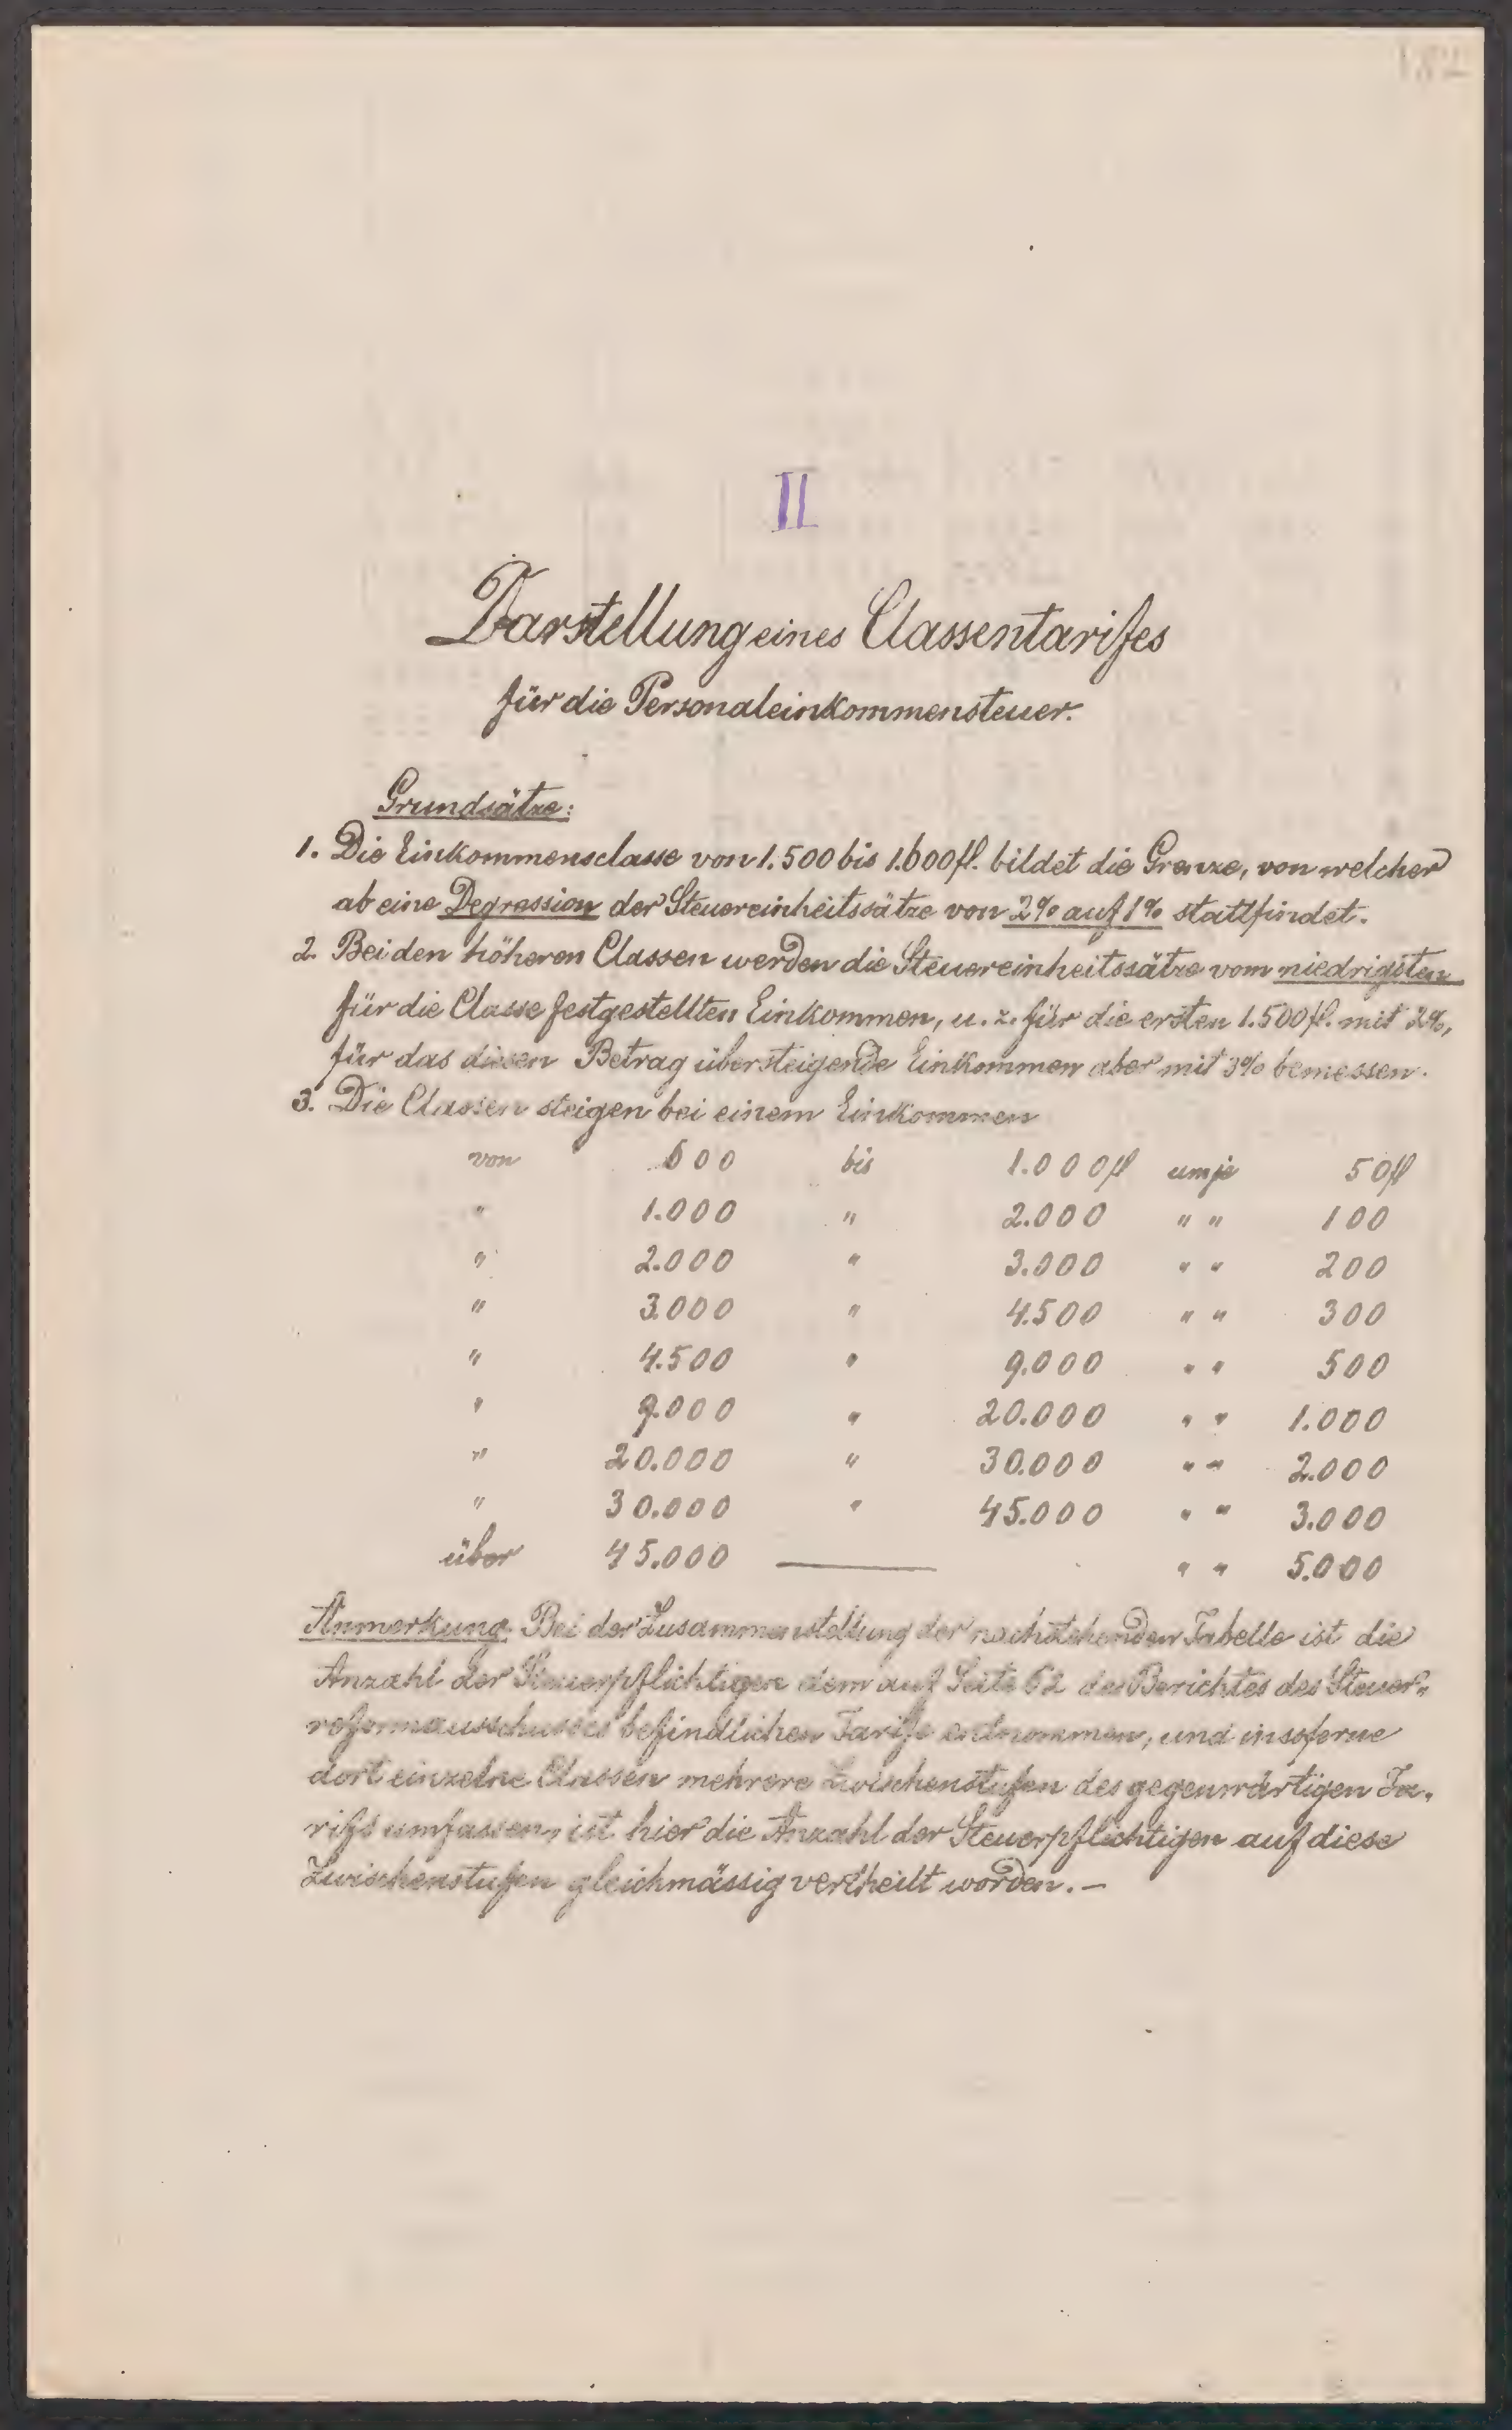 182
II
Darstellung eines Classentarifes
für die Personaleinkommensteuer.
Grundsätze:
1. Die Einkommensclasse von 1.500 bis 1.600 fl. bildet die Grenze, von welcher
ab eine Degression der Steuereinheitssätze von 2% auf 1% stattfindet.
2. Bei den höheren Classen werden die Steuereinheitssätze vom niedrigsten
für die Classe festgestellten Einkommen, u. z. für die ersten 1.500 fl. mit 2%,
für das diesen Betrag übersteigende Einkommen aber mit 3% bemessen.
3. Die Classen steigen bei einem Einkommen
von 600 bis 1.000 fl um je 50 fl
" 1.000 " 2.000 " " 100
" 2.000 " 3.000 " " 200
" 3.000 " 4.500 " " 300
" 4.500 " 9.000 " " 500
" 9.000 " 20.000 " " 1.000
" 20.000 " 30.000 " " 2.000
" 30.000 " 45.000 " " 3.000
über 45.000 — " " 5.000
Anmerkung: Bei der Zusammenstellung der nachstehenden Tabelle ist die
Anzahl der Steuerpflichtigen dem auf Seite 62 des Berichtes des Steuer-
reformausschusses befindlichen Tarife entnommen, und insoferne
dort einzelne Classen mehrere Zwischenstufen des gegenwärtigen Ta-
rifs umfassen, ist hier die Anzahl der Steuerpflichtigen auf diese
Zwischenstufen gleichmässig vertheilt worden. —